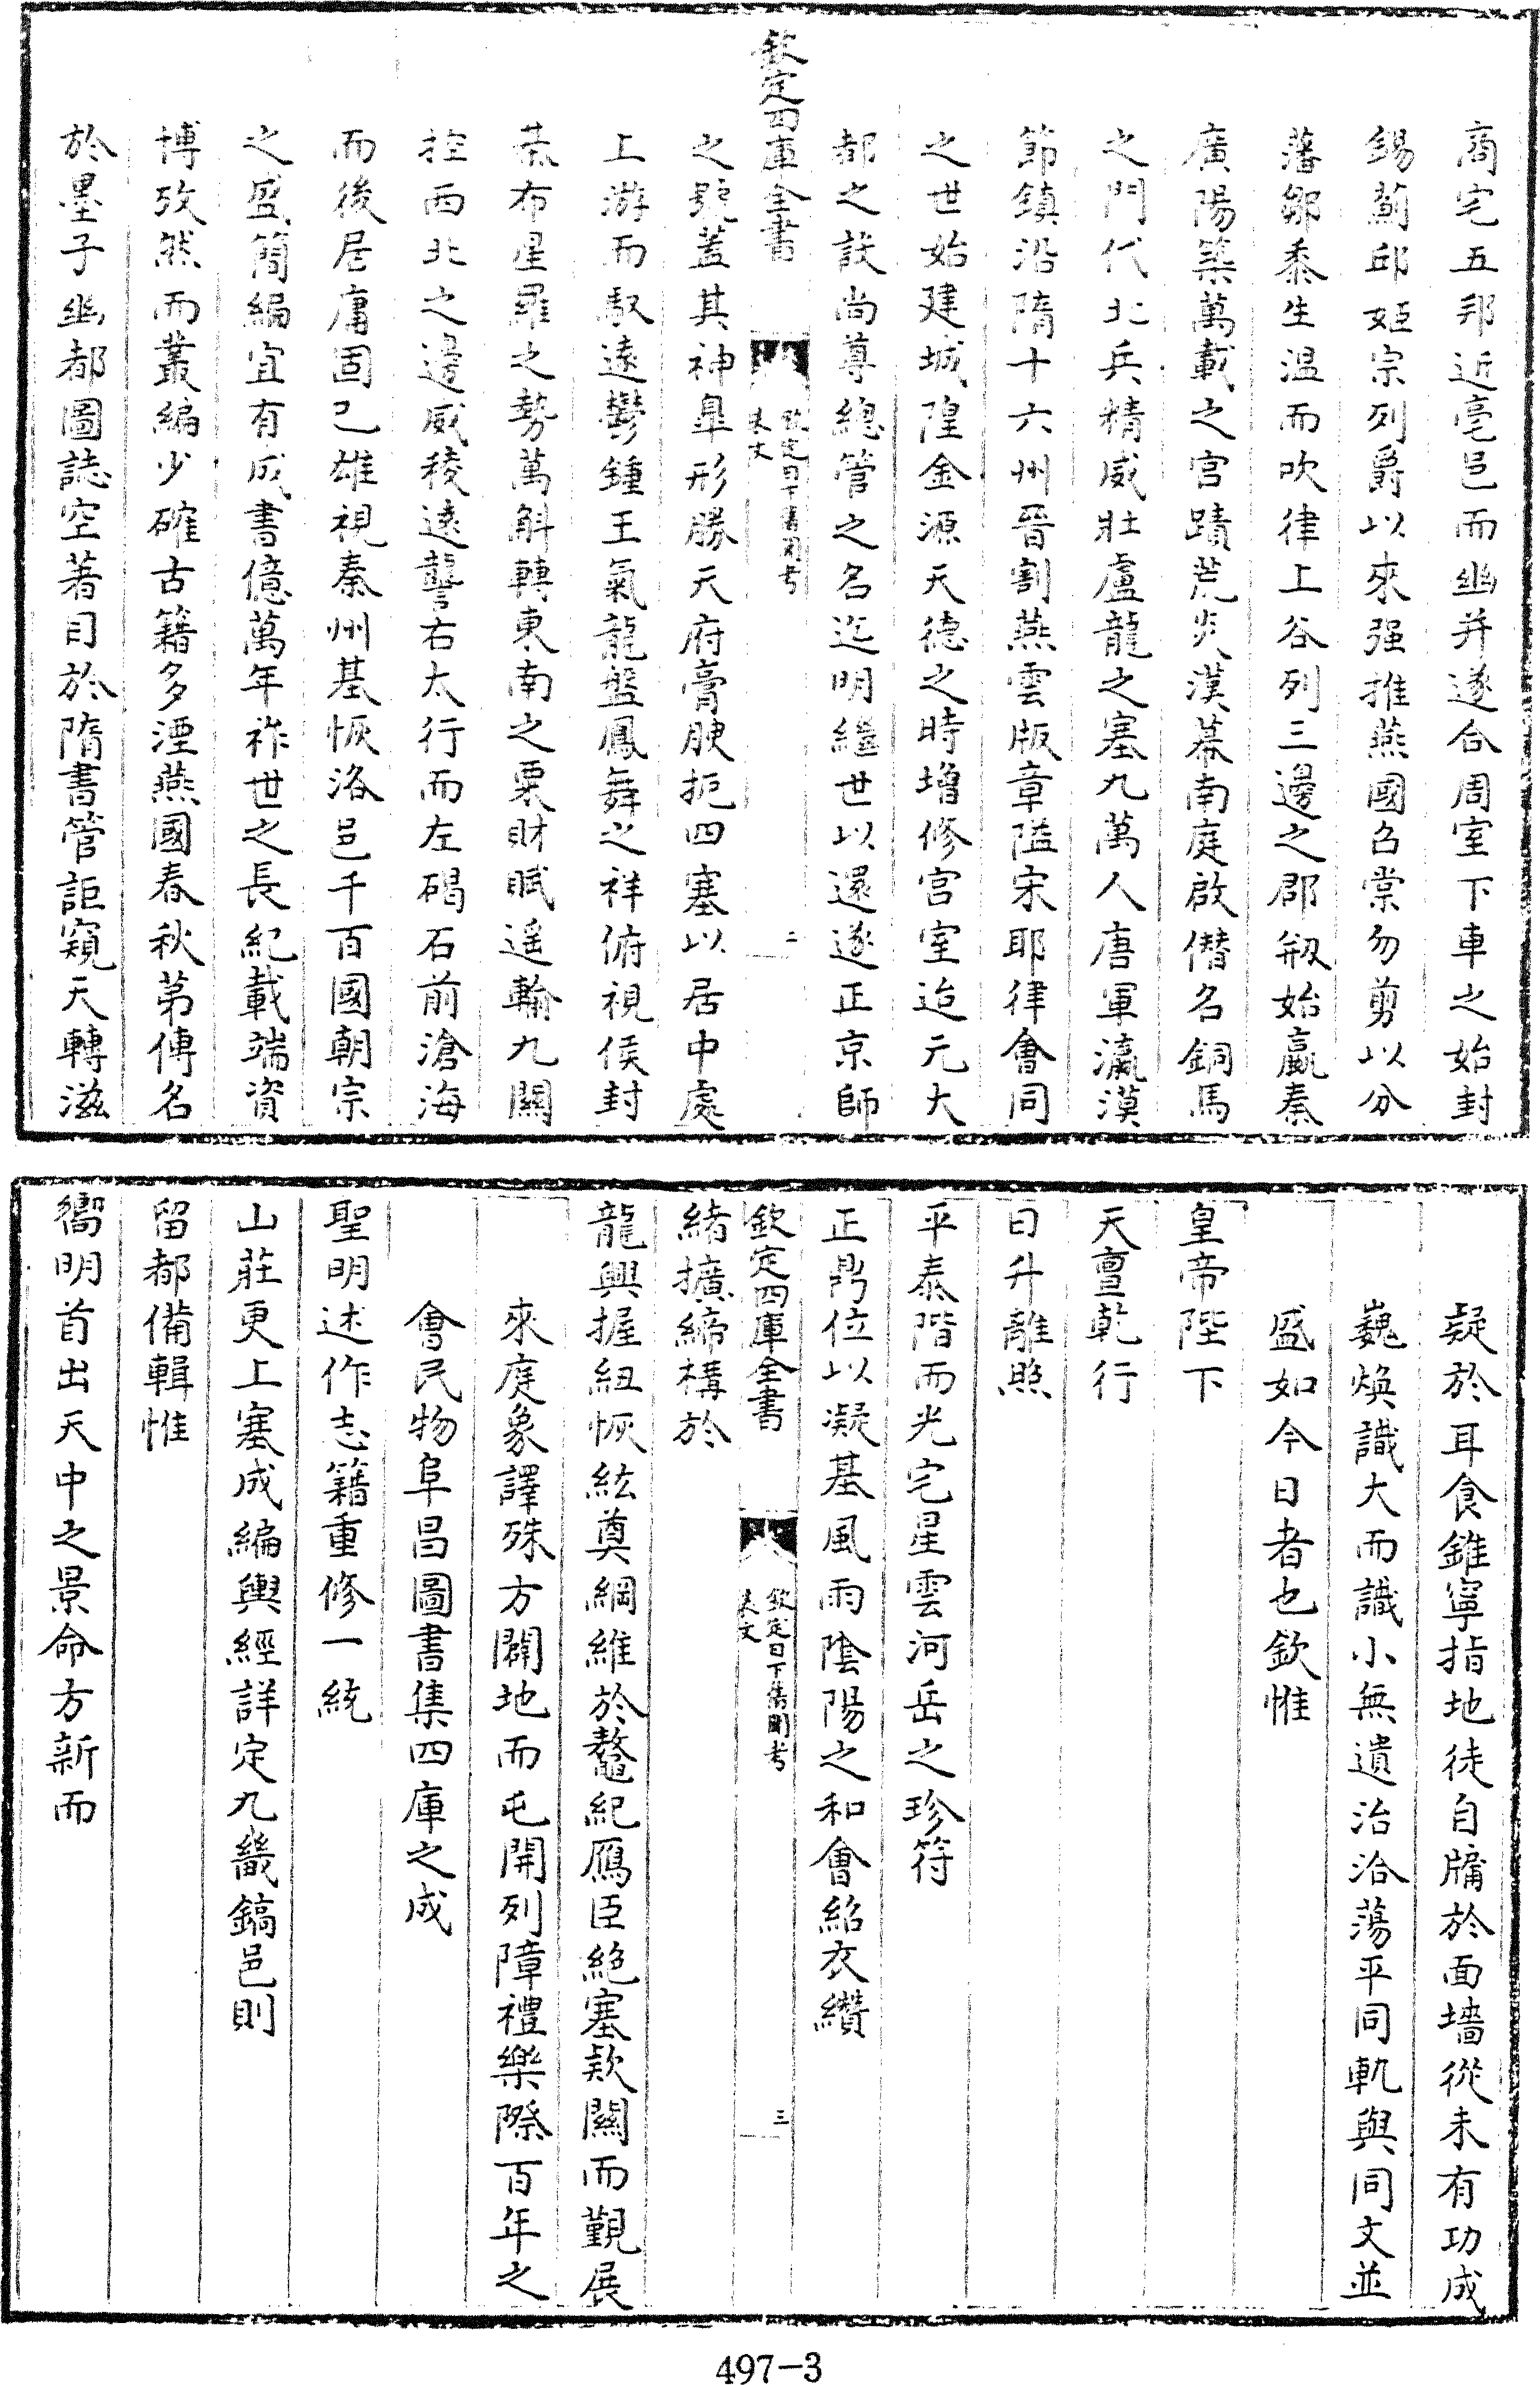 商宅五邦近亳邑而幽并遂合周室下車之始封
錫薊邱姬宗列爵以來强推燕國召棠勿剪以分
藩鄒黍生温而吹律上谷列三邊之郡剏始嬴秦
廣陽築萬載之宫蹟荒炎漢幕南庭啟僭名銅馬
之門代北兵精威壯盧龍之塞九萬人唐軍瀛漠
節鎮沿隋十六州晉割燕雲版章隘宋耶律會同
之世始建城隍金源天德之時增修宫室迨元大
都之設尚尊總管之名迄明繼世以還遂正京師
欽定四庫全書
欽定日下舊聞考
表文
二
之號蓋其神臯形勝天府膏腴扼四塞以居中處
上游而馭遠鬱鍾王氣龍盤鳳舞之祥俯視侯封
棊布星羅之勢萬斛轉東南之粟財賦遥輸九關
控西北之邊威稜遠讋右太行而左碣石前滄海
而後居庸固已雄視秦州基恢洛邑千百國朝宗
之盛簡編宜有成書億萬年祚世之長紀載端資
博攷然而叢編少確古籍多湮燕國春秋第傳名
於墨子幽都圖誌空著目於隋書管詎窺天轉滋
疑於耳食錐寧指地徒自牖於面墻從未有功成
巍煥識大而識小無遺治洽蕩平同軌與同文並
盛如今日者也欽惟
皇帝陛下
天亶乾行
日升離照
平泰階而光宅星雲河岳之珍符
正鼎位以凝基風雨陰陽之和會紹衣纘
欽定四庫全書
欽定日下舊聞考
表文
三
緒擴締構於
龍興握紐恢紘奠綱維於鼇紀鴈臣絶塞款關而覲展
來庭象譯殊方闢地而屯開列障禮樂際百年之
會民物阜昌圖書集四庫之成
聖明述作志籍重修一統
山莊更上塞成編輿經詳定九畿鎬邑則
留都備輯惟
嚮明首出天中之景命方新而
497-3